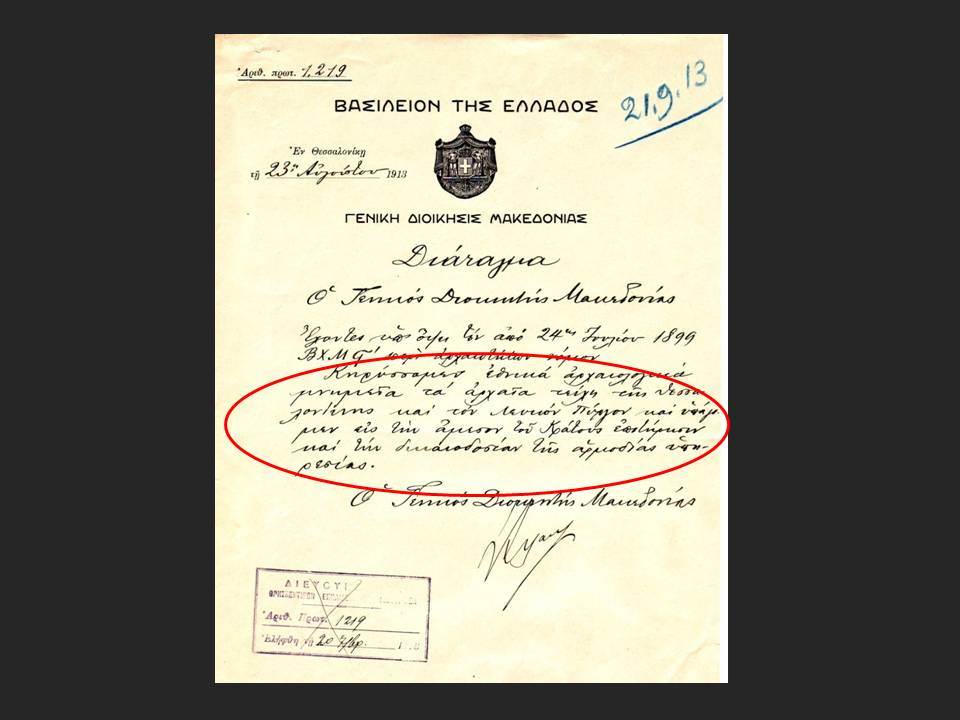 Ἀριθ. πρωτ. 1,219
21.9.13
ΒΑΣΙΛΕΙΟΝ ΤΗΣ ΕΛΛΑΔΟΣ
Ἐν Θεσσαλονίκῃ
τῇ 23ῃ Αὐγούστου 1913
ΓΕΝΙΚΗ ΔΙΟΙΚΗΣΙΣ ΜΑΚΕΔΟΝΙΑΣ
Διάταγμα
Ὁ Γενικός Διοικητής Μακεδονίας
Ἔχοντες ὑπ' ὄψει τόν ἀπό 24ης Ἰουλίου 1899
ΒΧΜϚ' περί ἀρχαιοτήτων νόμον
Κηρύσσομεν ἐθνικά ἀρχαιολογικά
μνημεῖα τά ἀρχαῖα τείχη τῆς Θεσσα
λονίκης καί τόν Λευκόν Πύργον καί ὑπάγο
μεν εἰς τήν ἄμεσον τοῦ Κράτους ἐπιτήρησιν
καί τήν δικαιοδοσίαν τῆς ἁρμοδίας ὑπη-
ρεσίας.
Ὁ Γενικός Διοικητής Μακεδονίας
ΔΙΕΥΘΥ
Ἀριθ. Πρωτ. 1219
Ἐλήφθη τῇ 20 7/βρ.